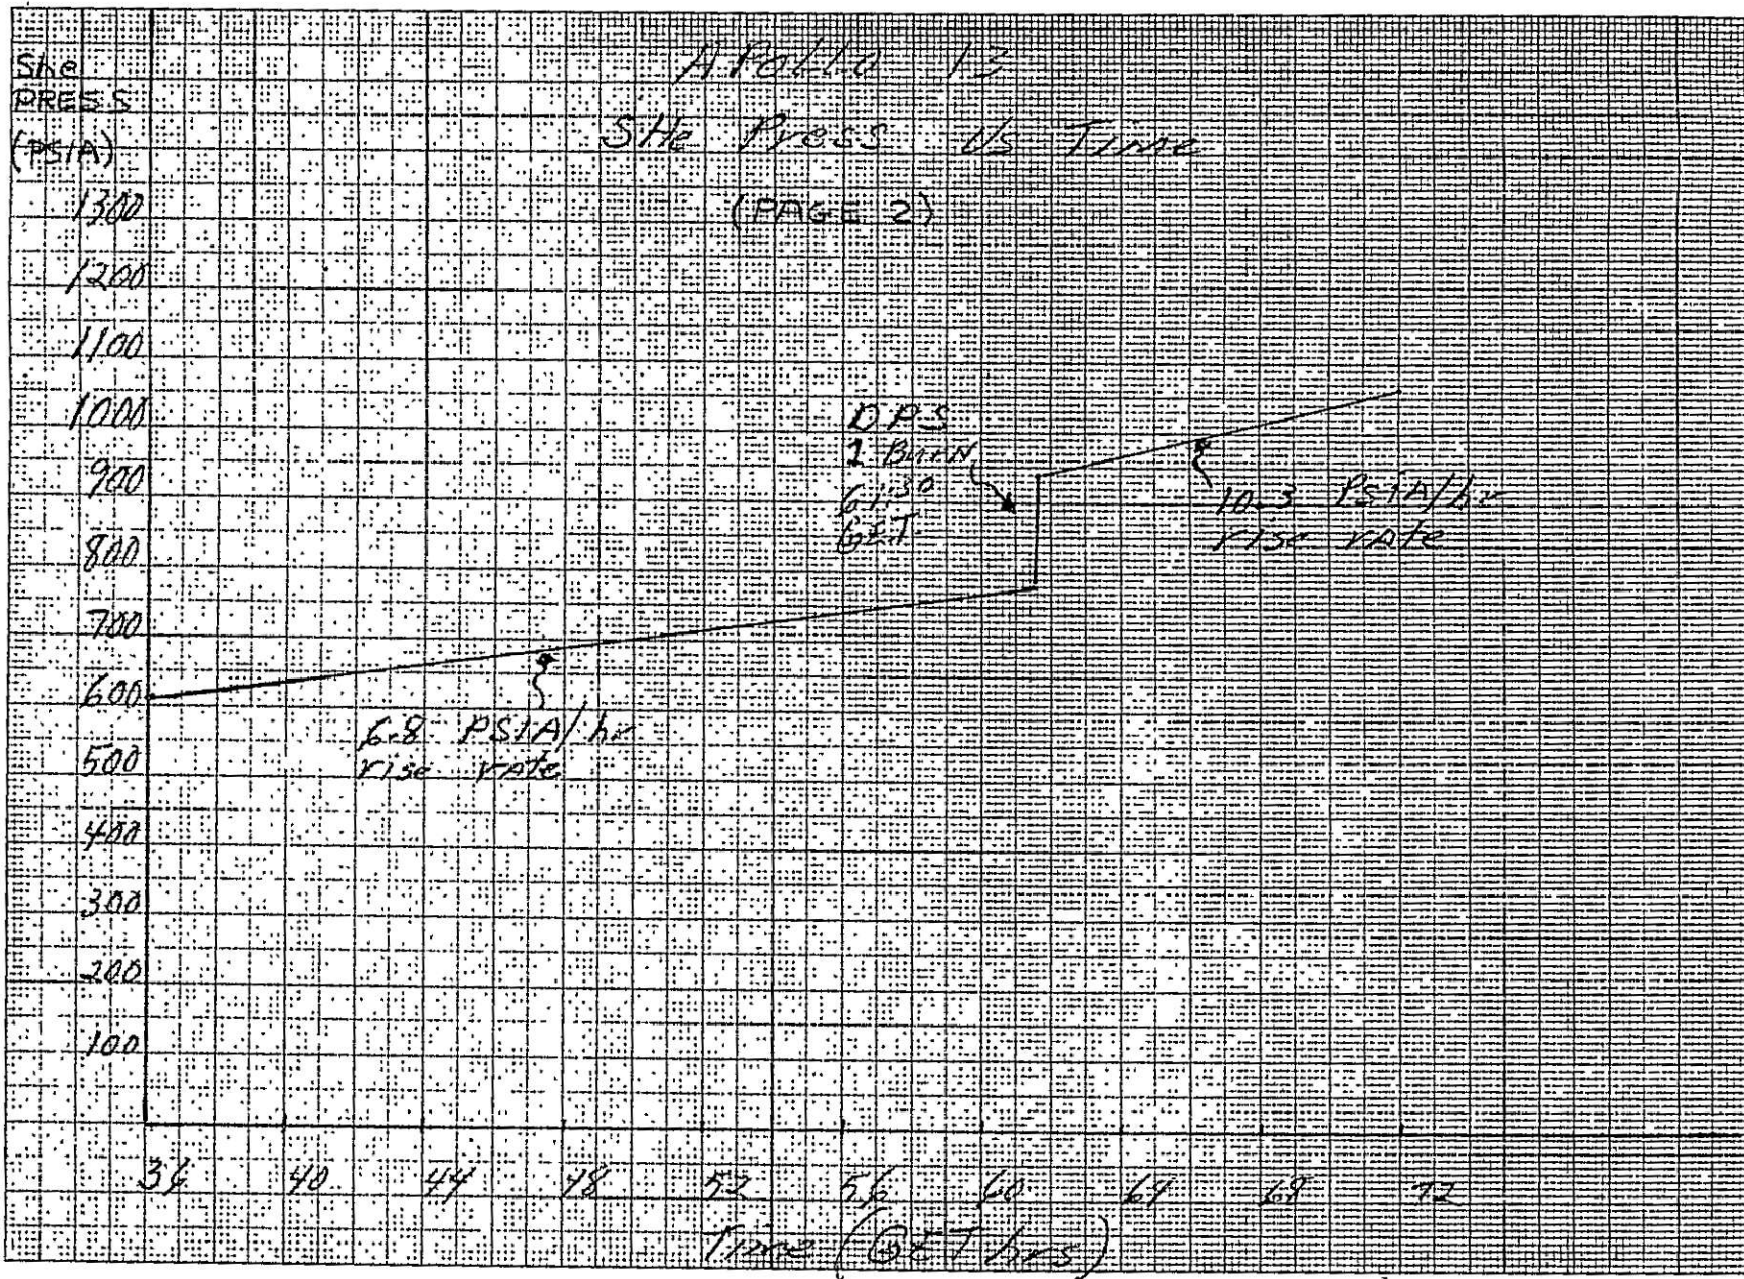 APOLLO 13
SHe Press Vs Time
(PAGE 2)
SHe
PRESS
(PSIA)
1300
1200
1100
1000
900
800
700
600
500
400
300
200
100
DPS
1 Burn
61:30
GET
10.3 PSIA/hr
rise rate
6.8 PSIA/hr
rise rate
36 40 44 48 52 56 60 64 68 72
Time (GET hrs)